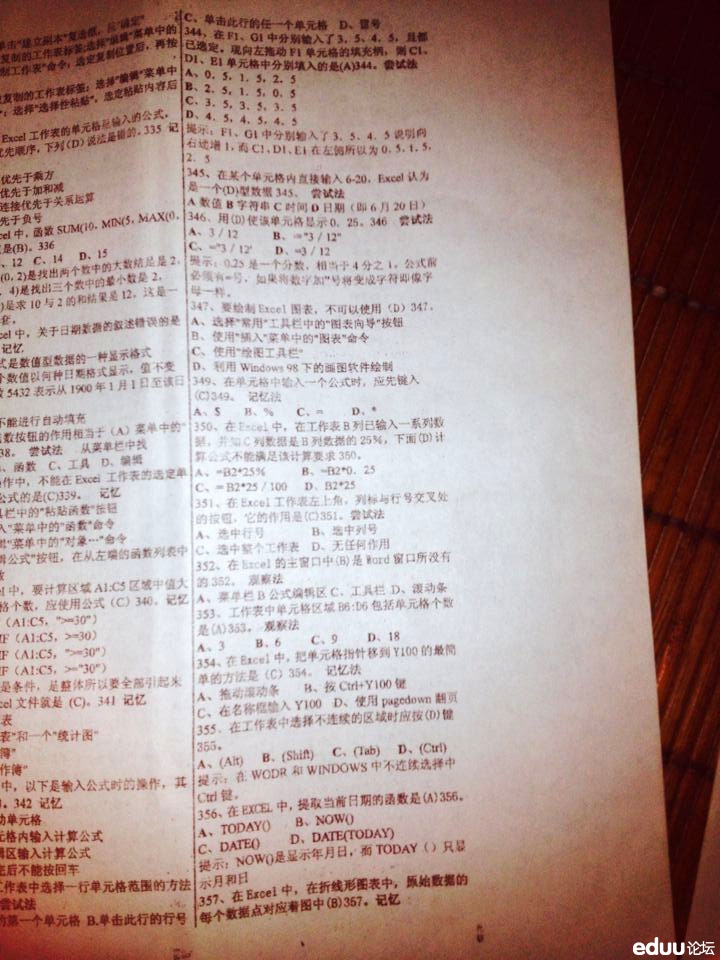 单击"建立副本"复选框,
复制的工作表标签;选择"编辑"菜单中的
制工作表"命令;选定复制位置后,再按
被复制的工作表标签;选择"编辑"菜单中
;选择"选择性粘贴",选定粘贴内容后
Excel 工作表的单元格里输入的公式,
优先顺序,下列(D)说法是错的。335 记
优先于乘方
优先于加和减
连接优先于关系运算
先于负号
cel 中,函数 SUM(10,MIN(5,MAX(0,
是(B)。336
、12 C、14 D、15
(0, 2)是找出两个数中的大数结是是 2,
, 4)是找出三个数中的最小数是 2,
)是求 10 与 2 的和结果是 12,这是一
套。
cel 中,关于日期数据的叙述错误的是
记忆
式是数值型数据的一种显示格式
个数值以何种日期格式显示,值不变
数 5432 表示从 1900 年 1 月 1 日至该日
不能进行自动填充
函数按钮的作用相当于(A)菜单中的"
38。 尝试法 从菜单栏中找
、函数 C、工具 D、编辑
作中,不能在 Excel 工作表的选定单
公式的是(C)339。 记忆
具栏中的"粘贴函数"按钮
入"菜单中的"函数"命令
辑"菜单中的"对象…"命令
辑公式"按钮,在从左端的函数列表中
数
el 中,要计算区域 A1:C5 区域中值大
格个数,应使用公式(C)340。记忆
(A1:C5, ">=30")
IF (A1:C5, >=30)
IF (A1:C5, ">=30")
IF (A1:C5, >="30")
是条件,是整体所以要全部引起来
cel 文件就是 (C)。341 记忆
表
表"和一个"统计图"
簿"
作簿"
中,以下是输入公式时的操作,其
。342 记忆
动单元格
元格内输入计算公式
辑区输入计算公式
完后不能按回车
工作表中选择一行单元格范围的方法
尝试法
的第一个单元格 B.单击此行的行号
C、单击此行的任一个单元格 D、冒号
344、在 F1、G1 中分别输入了 3.5、4.5,且都
已选定。现向左拖动 F1 单元格的填充柄,则 C1、
D1、E1 单元格中分别填入的是(A)344。尝试法
A、0.5,1.5,2.5
B、2.5,1.5,0.5
C、3.5,3.5,3.5
D、4.5,4.5,4.5
提示:F1、G1 中分别输入了 3.5、4.5 说明向
右递增 1,而 C1、D1、E1 在左侧所以为 0.5,1.5,
2.5
345、在某个单元格内直接输入 6-20,Excel 认为
是一个(D)型数据 345。 尝试法
A 数值 B 字符串 C 时间 D 日期(即 6 月 20 日)
346、用(D)使该单元格显示 0.25。346 尝试法
A、3 / 12 B、="3 / 12"
C、="3 / 12' D、=3 / 12
提示:0.25 是一个分数,相当于 4 分之 1。公式前
必须有=号,如果将数字加"号将变成字符即像字
母一样。
347、要绘制 Excel 图表,不可以使用(D)347。
A、选择"常用"工具栏中的"图表向导"按钮
B、使用"插入"菜单中的"图表"命令
C、使用"绘图工具栏"
D、利用 Windows 98 下的画图软件绘制
349、在单元格中输入一个公式时,应先键入
(C)349。 记忆法
A、$ B、% C、= D、*
350、在 Excel 中,在工作表 B 列已输入一系列数
据,并知 C 列数据是 B 列数据的 25%,下面(D)计
算公式不能满足该计算要求 350。
A、=B2*25% B、=B2*0.25
C、=B2*25 / 100 D、B2*25
351、在 Excel 工作表左上角,列标与行号交叉处
的按钮,它的作用是(C)351。尝试法
A、选中行号 B、选中列号
C、选中整个工作表 D、无任何作用
352、在 Excel 的主窗口中(B)是 Word 窗口所没有
的 352。 观察法
A、菜单栏 B 公式编辑区 C、工具栏 D、滚动条
353、工作表中单元格区域 B6:D6 包括单元格个数
是(A)353。 观察法
A、3 B、6 C、9 D、18
354、在 Excel 中,把单元格指针移到 Y100 的最简
单的方法是(C)354。 记忆法
A、拖动滚动条 B、按 Ctrl+Y100 键
C、在名称框输入 Y100 D、使用 pagedown 翻页
355、在工作表中选择不连续的区域时应按(D)键
355。
A、(Alt) B、(Shift) C、(Tab) D、(Ctrl)
提示:在 WODR 和 WINDOWS 中不连续选择中
Ctrl 键。
356、在 EXCEL 中,提取当前日期的函数是(A)356。
A、TODAY() B、NOW()
C、DATE() D、DATE(TODAY)
提示:NOW()是显示年月日,而 TODAY()只显
示月和日
357、在 Excel 中,在折线形图表中,原始数据的
每个数据点对应着图中(B)357。记忆
eduu论坛